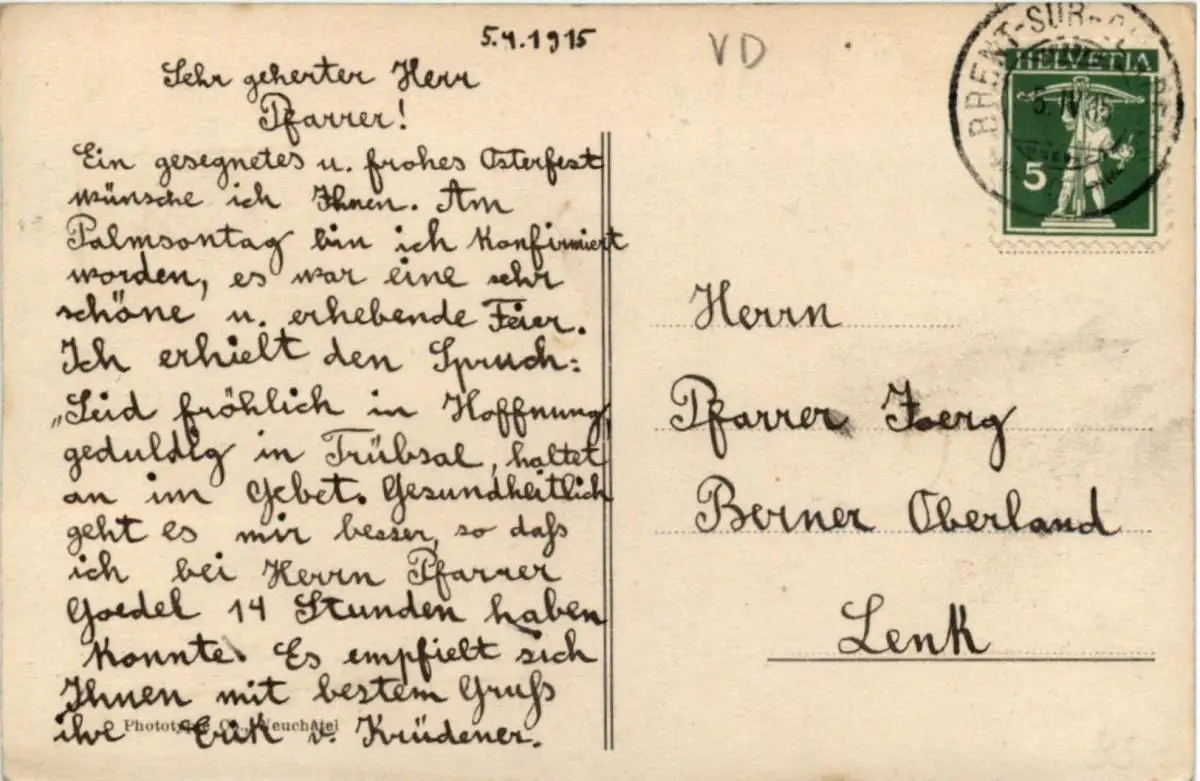 5.4.1915
VD
Sehr geherter Herr
Pfarrer!
Ein gesegnetes u. frohes Osterfest
wünsche ich Ihnen. Am
Palmsontag bin ich Konfirmiert
worden, es war eine sehr
schöne u. erhebende Feier.
Ich erhielt den Spruch:
„Seid fröhlich in Hoffnung,
geduldig in Trübsal, haltet
an im Gebet. Gesundheitlich
geht es mir besser, so daß
ich bei Herrn Pfarrer
Goedel 14 Stunden haben
Konnte. Es empfielt sich
Ihnen mit bestem Gruß
ihre Erik v. Krüdener.
Phototypie Co., Neuchâtel
BRENT-SUR-
5. IV. 15
HELVETIA
5
Herrn
Pfarrer Joerg
Berner Oberland
Lenk